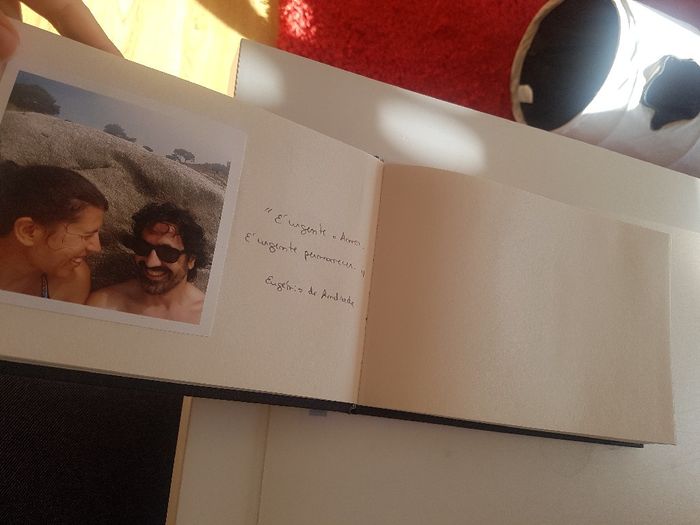 "É urgente o Amor.
É urgente permanecer."
Eugénio de Andrade